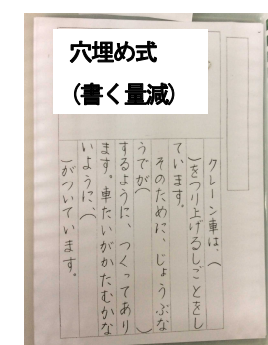 穴埋め式
(書く量減)
クレーン車は、(
)をつり上げるしごとをし
ています。
そのために、じょうぶな
うでが(　　　　)
するように、つくってあり
ます。車たいがかたむかな
いように、(
)がついています。